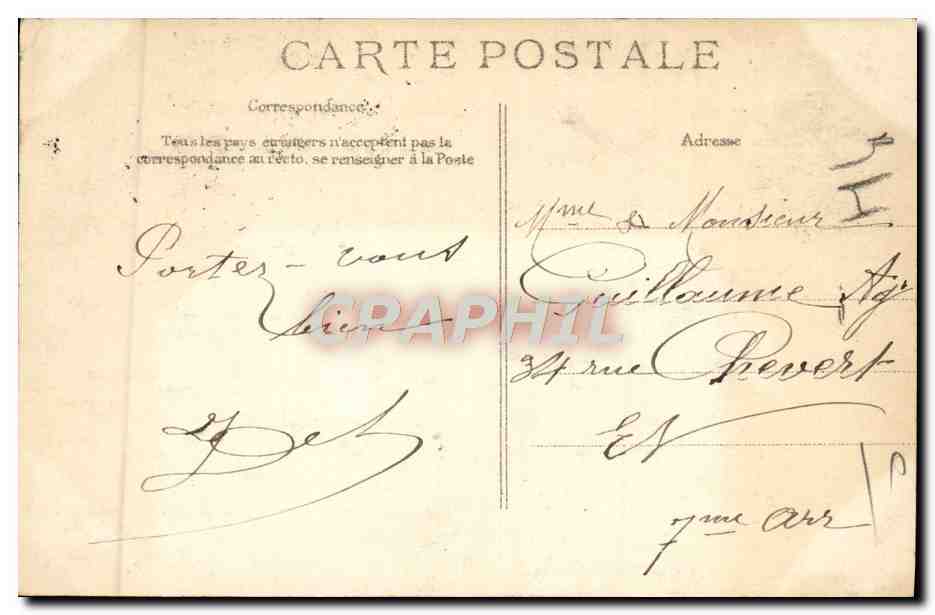 CARTE POSTALE
Correspondance
Tous les pays étrangers n'acceptent pas la
correspondance au recto, se renseigner à la Poste
Portez-vous
bien
Adresse
Mme & Monsieur
Guillaume, Agt
34 rue Chevert
EV
7me arr
CRAPHIL